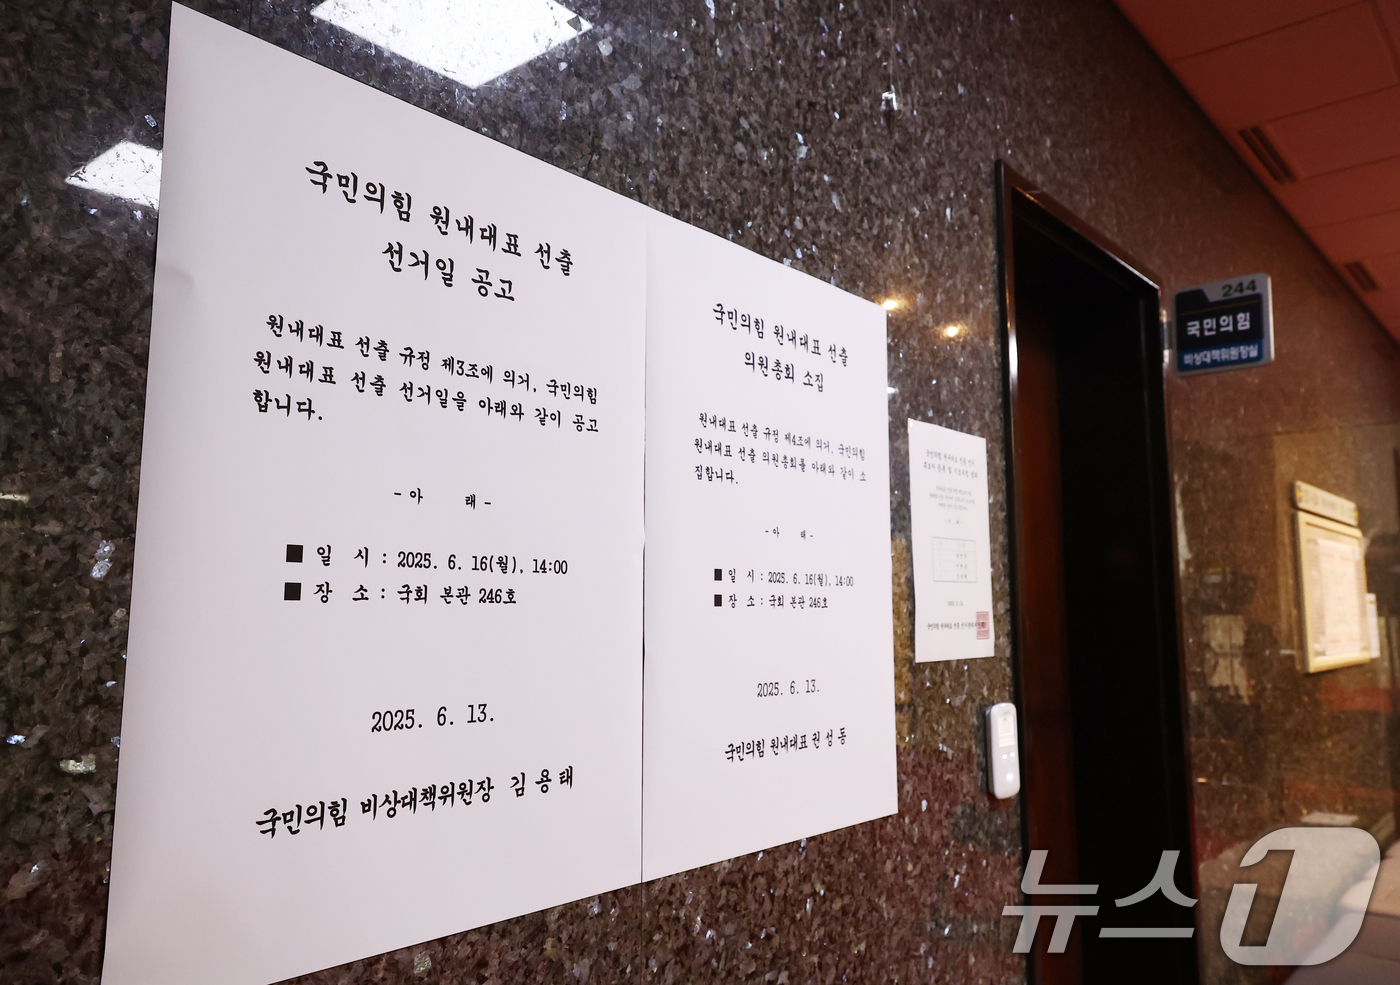 국민의힘 원내대표 선출
선거일 공고
원내대표 선출 규정 제3조에 의거, 국민의힘
원내대표 선출 선거일을 아래와 같이 공고
합니다.
-아 래-
■ 일 시 : 2025. 6. 16(월), 14:00
■ 장 소 : 국회 본관 246호
2025. 6. 13.
국민의힘 비상대책위원장 김용태
국민의힘 원내대표 선출
의원총회 소집
원내대표 선출 규정 제4조에 의거, 국민의힘
원내대표 선출 의원총회를 아래와 같이 소
집합니다.
-아 래-
■ 일 시 : 2025. 6. 16(월), 14:00
■ 장 소 : 국회 본관 246호
2025. 6. 13.
국민의힘 원내대표 권성동
244
국민의힘
비상대책위원장실
뉴스1